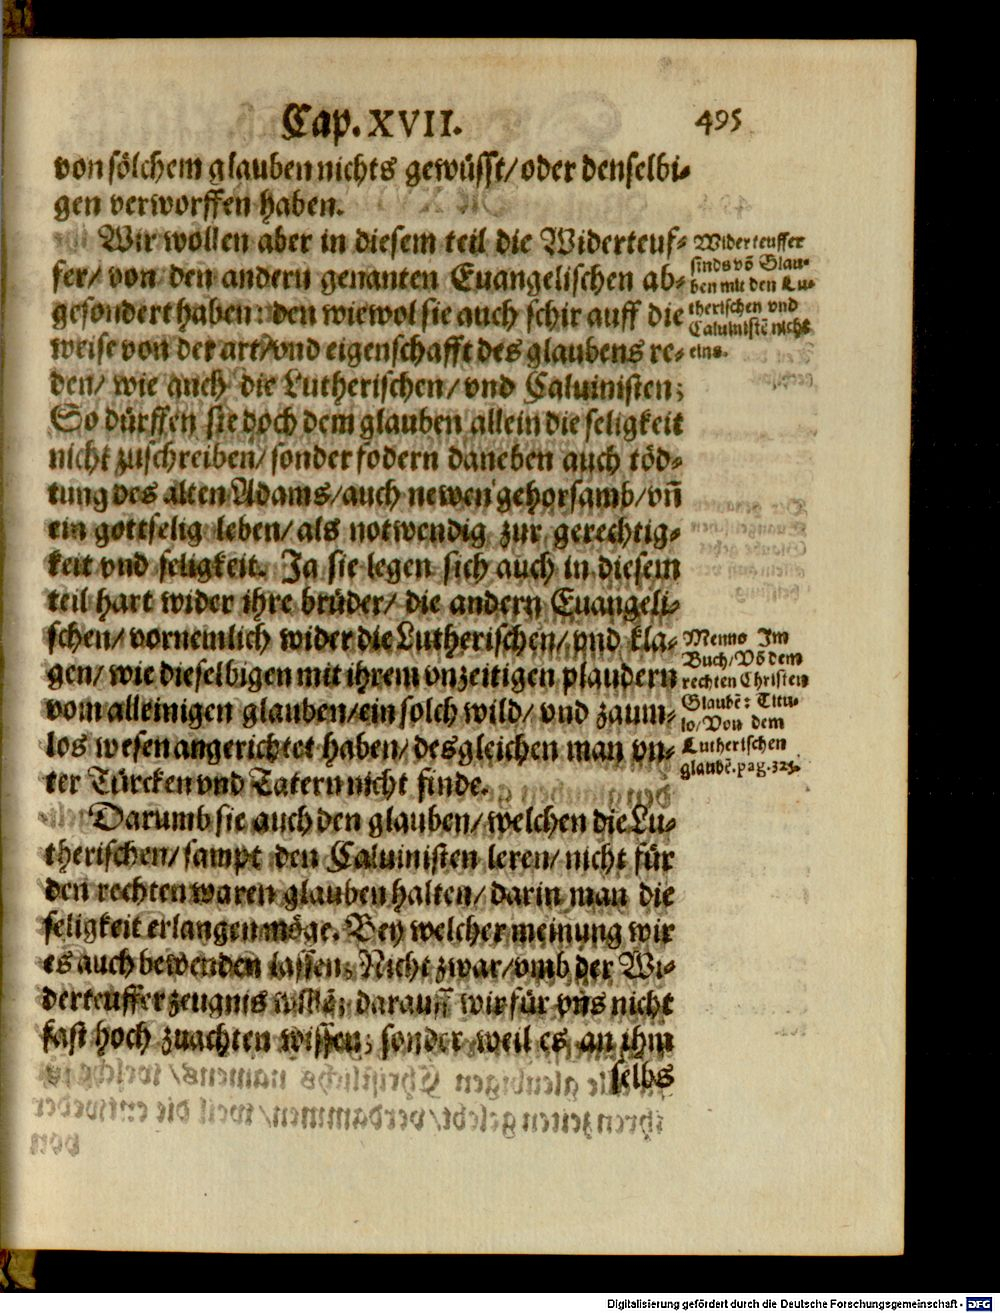 Cap. XVII. 495
von sölchem glauben nichts gewüsst/ oder denselbi-
gen verworffen haben.
Wir wollen aber in diesem teil die Widerteuf-
fer/ von den andern genanten Euangelischen ab-
gesondert haben: den wiewol sie auch schir auff die
weise von der art/ vnd eigenschafft des glaubens re-
den/ wie auch die Lutherischen/ vnd Caluinisten;
So dürffen sie doch dem glauben allein die seligkeit
nicht zuschreiben/ sonder fodern daneben auch töd-
tung des alten Adams/ auch newen gehorsamb/ vn̄
ein gottselig leben/ als notwendig zur gerechtig-
keit vnd seligkeit. Ja sie legen sich auch in diesem
teil hart wider ihre brüder/ die andern Euangeli-
schen/ vornemlich wider die Lutherischen/ vnd kla-
gen/ wie dieselbigen mit ihrem vnzeitigen plaudern
vom alleinigen glauben/ ein solch wild/ vnd zaum-
los wesen angerichtet haben/ desgleichen man vn-
ter Türcken vnd Tatern nicht finde.
Darumb sie auch den glauben/ welchen die Lu-
therischen/ sampt den Caluinisten leren/ nicht für
den rechten waren glauben halten/ darin man die
seligkeit erlangen möge. Bey welcher meinung wir
es auch bewenden lassen; Nicht zwar/ vmb der Wi-
derteuffer zeugnis willē; darauff wir für vns nicht
fast hoch zuachten wissen; sonder weil es an ihm
selbs
Widerteuffer
sinds vō Glau-
ben mit den Lu-
therischen vnd
Caluinistē nicht
eins.
Menno Im
Buch/ Vō dem
rechten Christen
Glaubē: Titu-
lo/ Von dem
Lutherischen
glaubē. pag. 325.
Digitalisierung gefördert durch die Deutsche Forschungsgemeinschaft - DFG